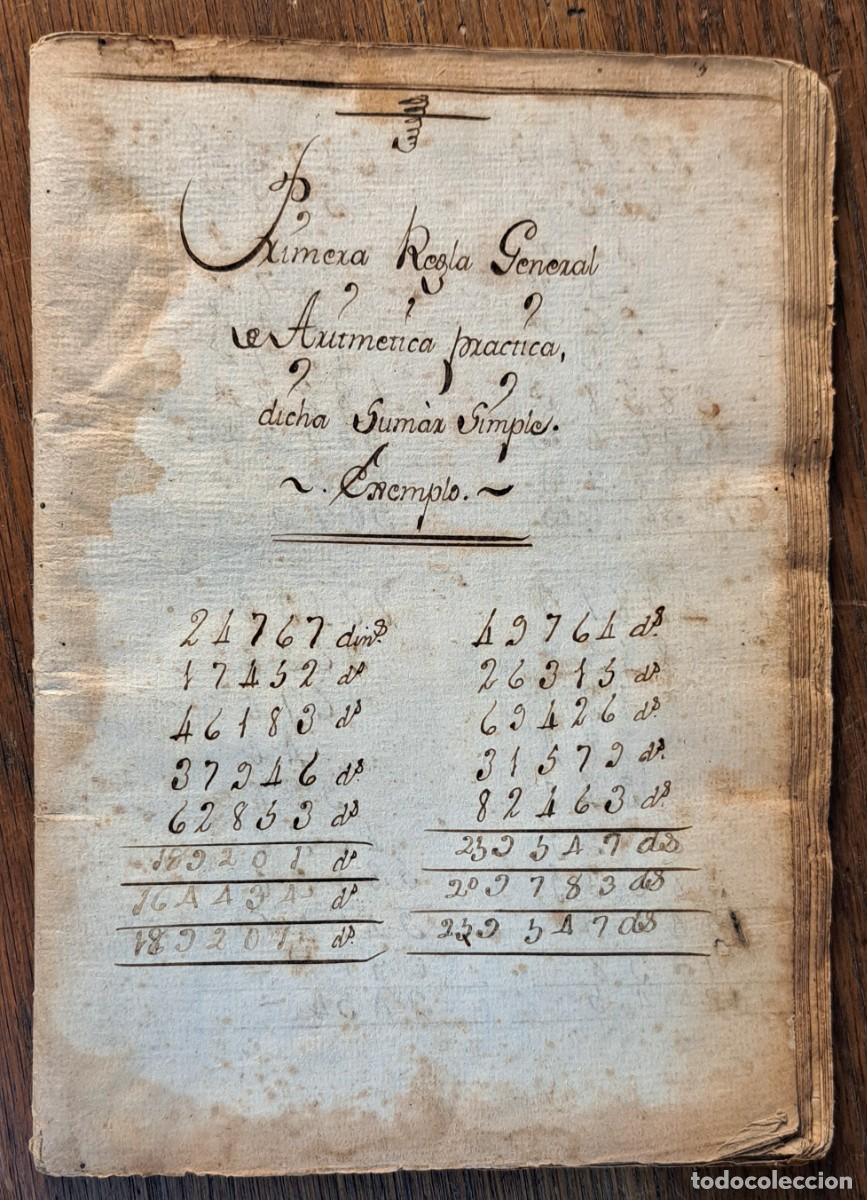 Primera Regla General
de Aritmetica practica,
dicha Sumàr Simple.
~. Exemplo. ~
24767 dinˢ.
17452 dˢ
46183 dˢ
37946 dˢ
62853 dˢ
189201 dˢ
164434 dˢ
189201 dˢ
49764 dˢ.
26315 dˢ.
69426 dˢ.
31579 dˢ.
82463 dˢ.
259547 dˢ
209783 dˢ
259547 dˢ
todocoleccion